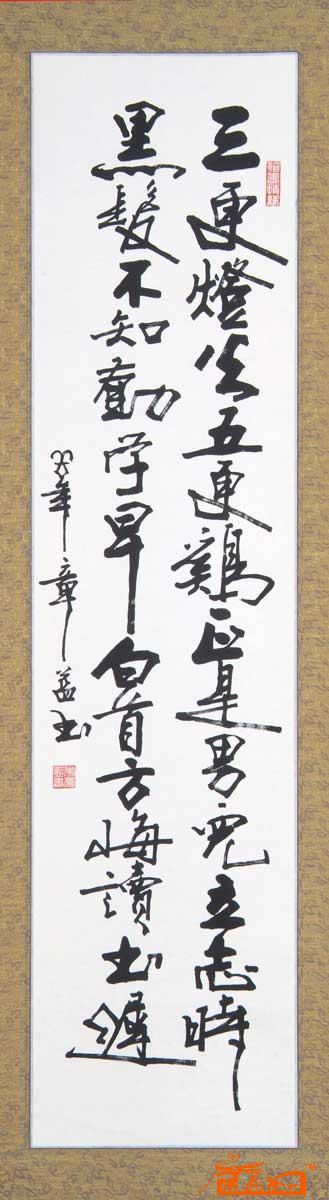 三更燈火五更鷄正是男兒立志時
黑髮不知勤学早白首方悔讀书遲
年章益书